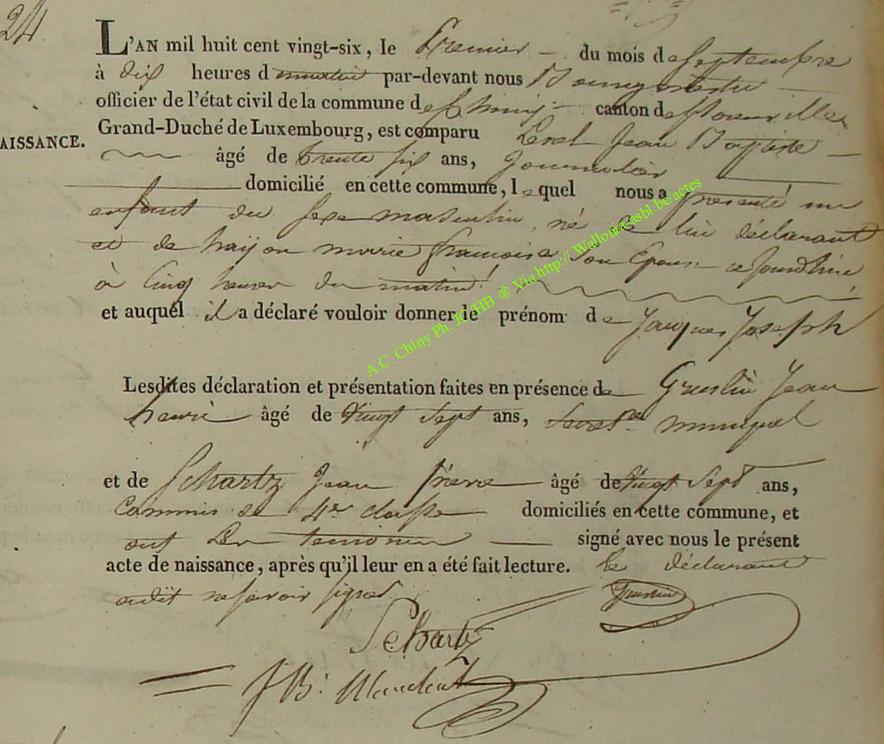 24
L'AN mil huit cent vingt-six, le Premier du mois de Septembre
à dix heures du matin par-devant nous Bourgmestre
officier de l'état civil de la commune de Chiny canton de florenville
AISSANCE.
Grand-Duché de Luxembourg, est comparu Jean Baptiste
âgé de trente six ans, journalier
domicilié en cette commune, lequel nous a présenté un
enfant du sexe masculin, né de lui déclarant
et de marie françoise son Epouse cejourd'hui
à Cinq heures du matin
et auquel il a déclaré vouloir donner le prénom de Jacques Joseph
A.C. Chiny Ph. JGHB ® Via http://Wallonia.asbl.be/actes
Lesdites déclaration et présentation faites en présence de Gruslin Jean
henri âgé de Vingt Sept ans, Secret.re municipal
et de Schartz Jean pierre âgé de Vingt Sept ans,
Commis de 4e classe domiciliés en cette commune, et
ont signé avec nous le présent
acte de naissance, après qu'il leur en a été fait lecture. le déclarant
a dit ne savoir signer
Gruslin
Schartz
J B: